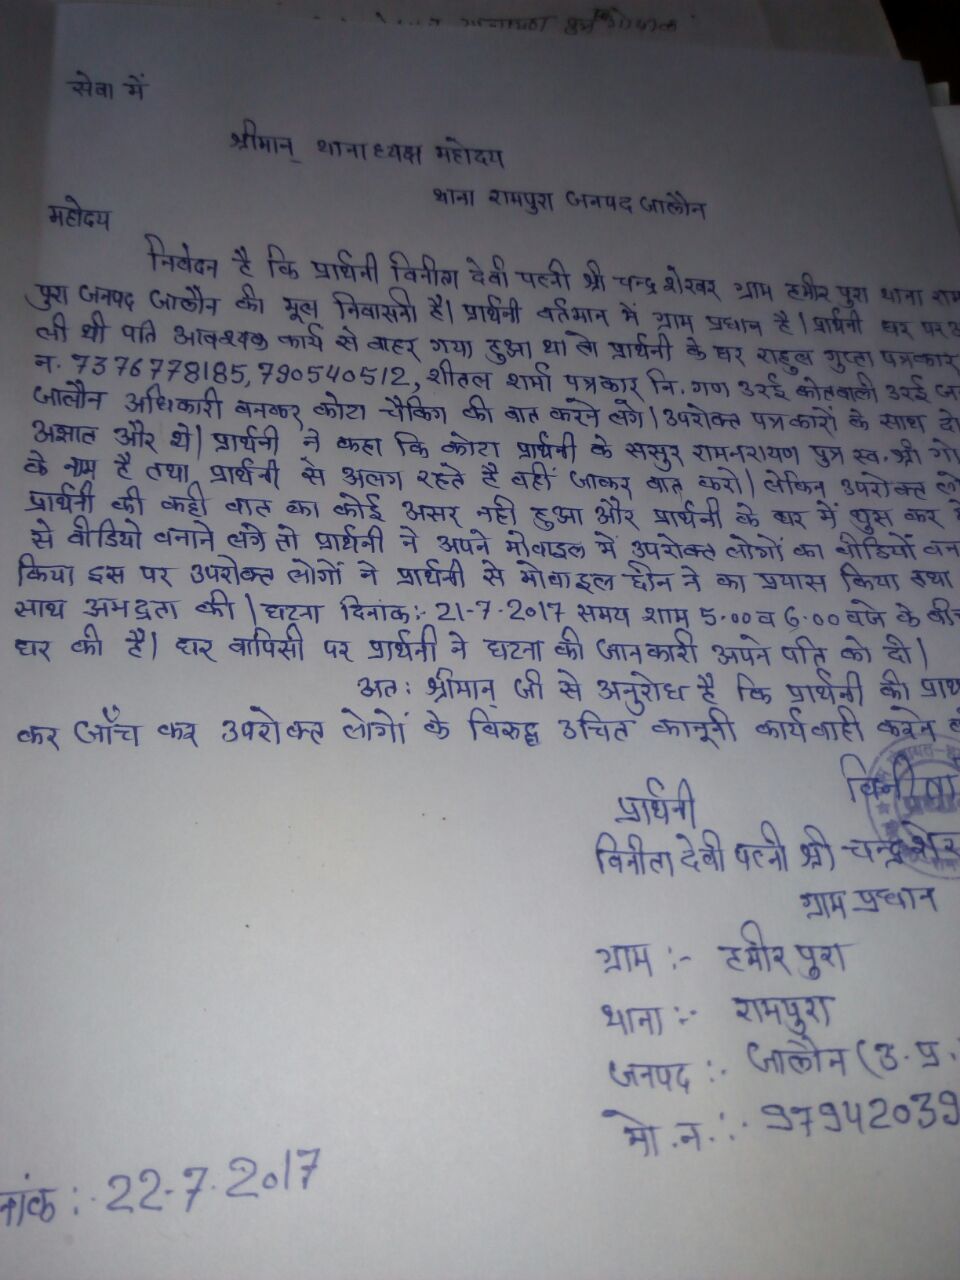 सेवा में
श्रीमान् थानाध्यक्ष महोदय
थाना रामपुरा जनपद जालौन
महोदय
निवेदन है कि प्रार्थिनी विनीता देवी पत्नी श्री चन्द्रशेखर ग्राम हमीरपुरा थाना राम
पुरा जनपद जालौन की मूल निवासनी है। प्रार्थिनी वर्तमान में ग्राम प्रधान है। प्रार्थिनी घर पर
ली थी पति आवश्यक कार्य से बाहर गया हुआ था तो प्रार्थनी के घर राहुल गुप्ता पत्रकार
न. 7376778185, 790540512, शीतल शर्मा पत्रकार नि. गण उरई कोतवाली उरई
जालौन अधिकारी बनकर कोटा चैकिंग की बात करने लगे। उपरोक्त पत्रकारों के साथ दो
अज्ञात और थे। प्रार्थनी ने कहा कि कोटा प्रार्थनी के ससुर रामनरायण पुत्र स्व. श्री गो
के नाम है तथा प्रार्थनी से अलग रहते है वहीं जाकर बात करो। लेकिन उपरोक्त
प्रार्थनी की कही बात का कोई असर नही हुआ और प्रार्थनी के घर में घुस कर
से वीडियो बनाने लगे तो प्रार्थनी ने अपने मोबाइल में उपरोक्त लोगों का वीडियों बन
किया इस पर उपरोक्त लोगों ने प्रार्थनी से मोबाइल छीन ने का प्रयास किया तथा
साथ अभद्रता की। घटना दिनांक:- 21-7-2017 समय शाम 5.00 व 6.00 बजे के बीच
घर की है। घर वापिसी पर प्रार्थनी ने घटना की जानकारी अपने पति को दी।
अतः श्रीमान् जी से अनुरोध है कि प्रार्थनी की प्रार्थ
कर जाँच कर उपरोक्त लोगों के विरुद्ध उचित कानूनी कार्यवाही करने
विनीता
प्रार्थनी
विनीता देवी पत्नी श्री चन्द्रशेख
ग्राम प्रधान
ग्राम :- हमीरपुरा
थाना :- रामपुरा
जनपद :- जालौन (उ. प्र.
मो. न. :- 97942039
नांक :- 22-7-2017